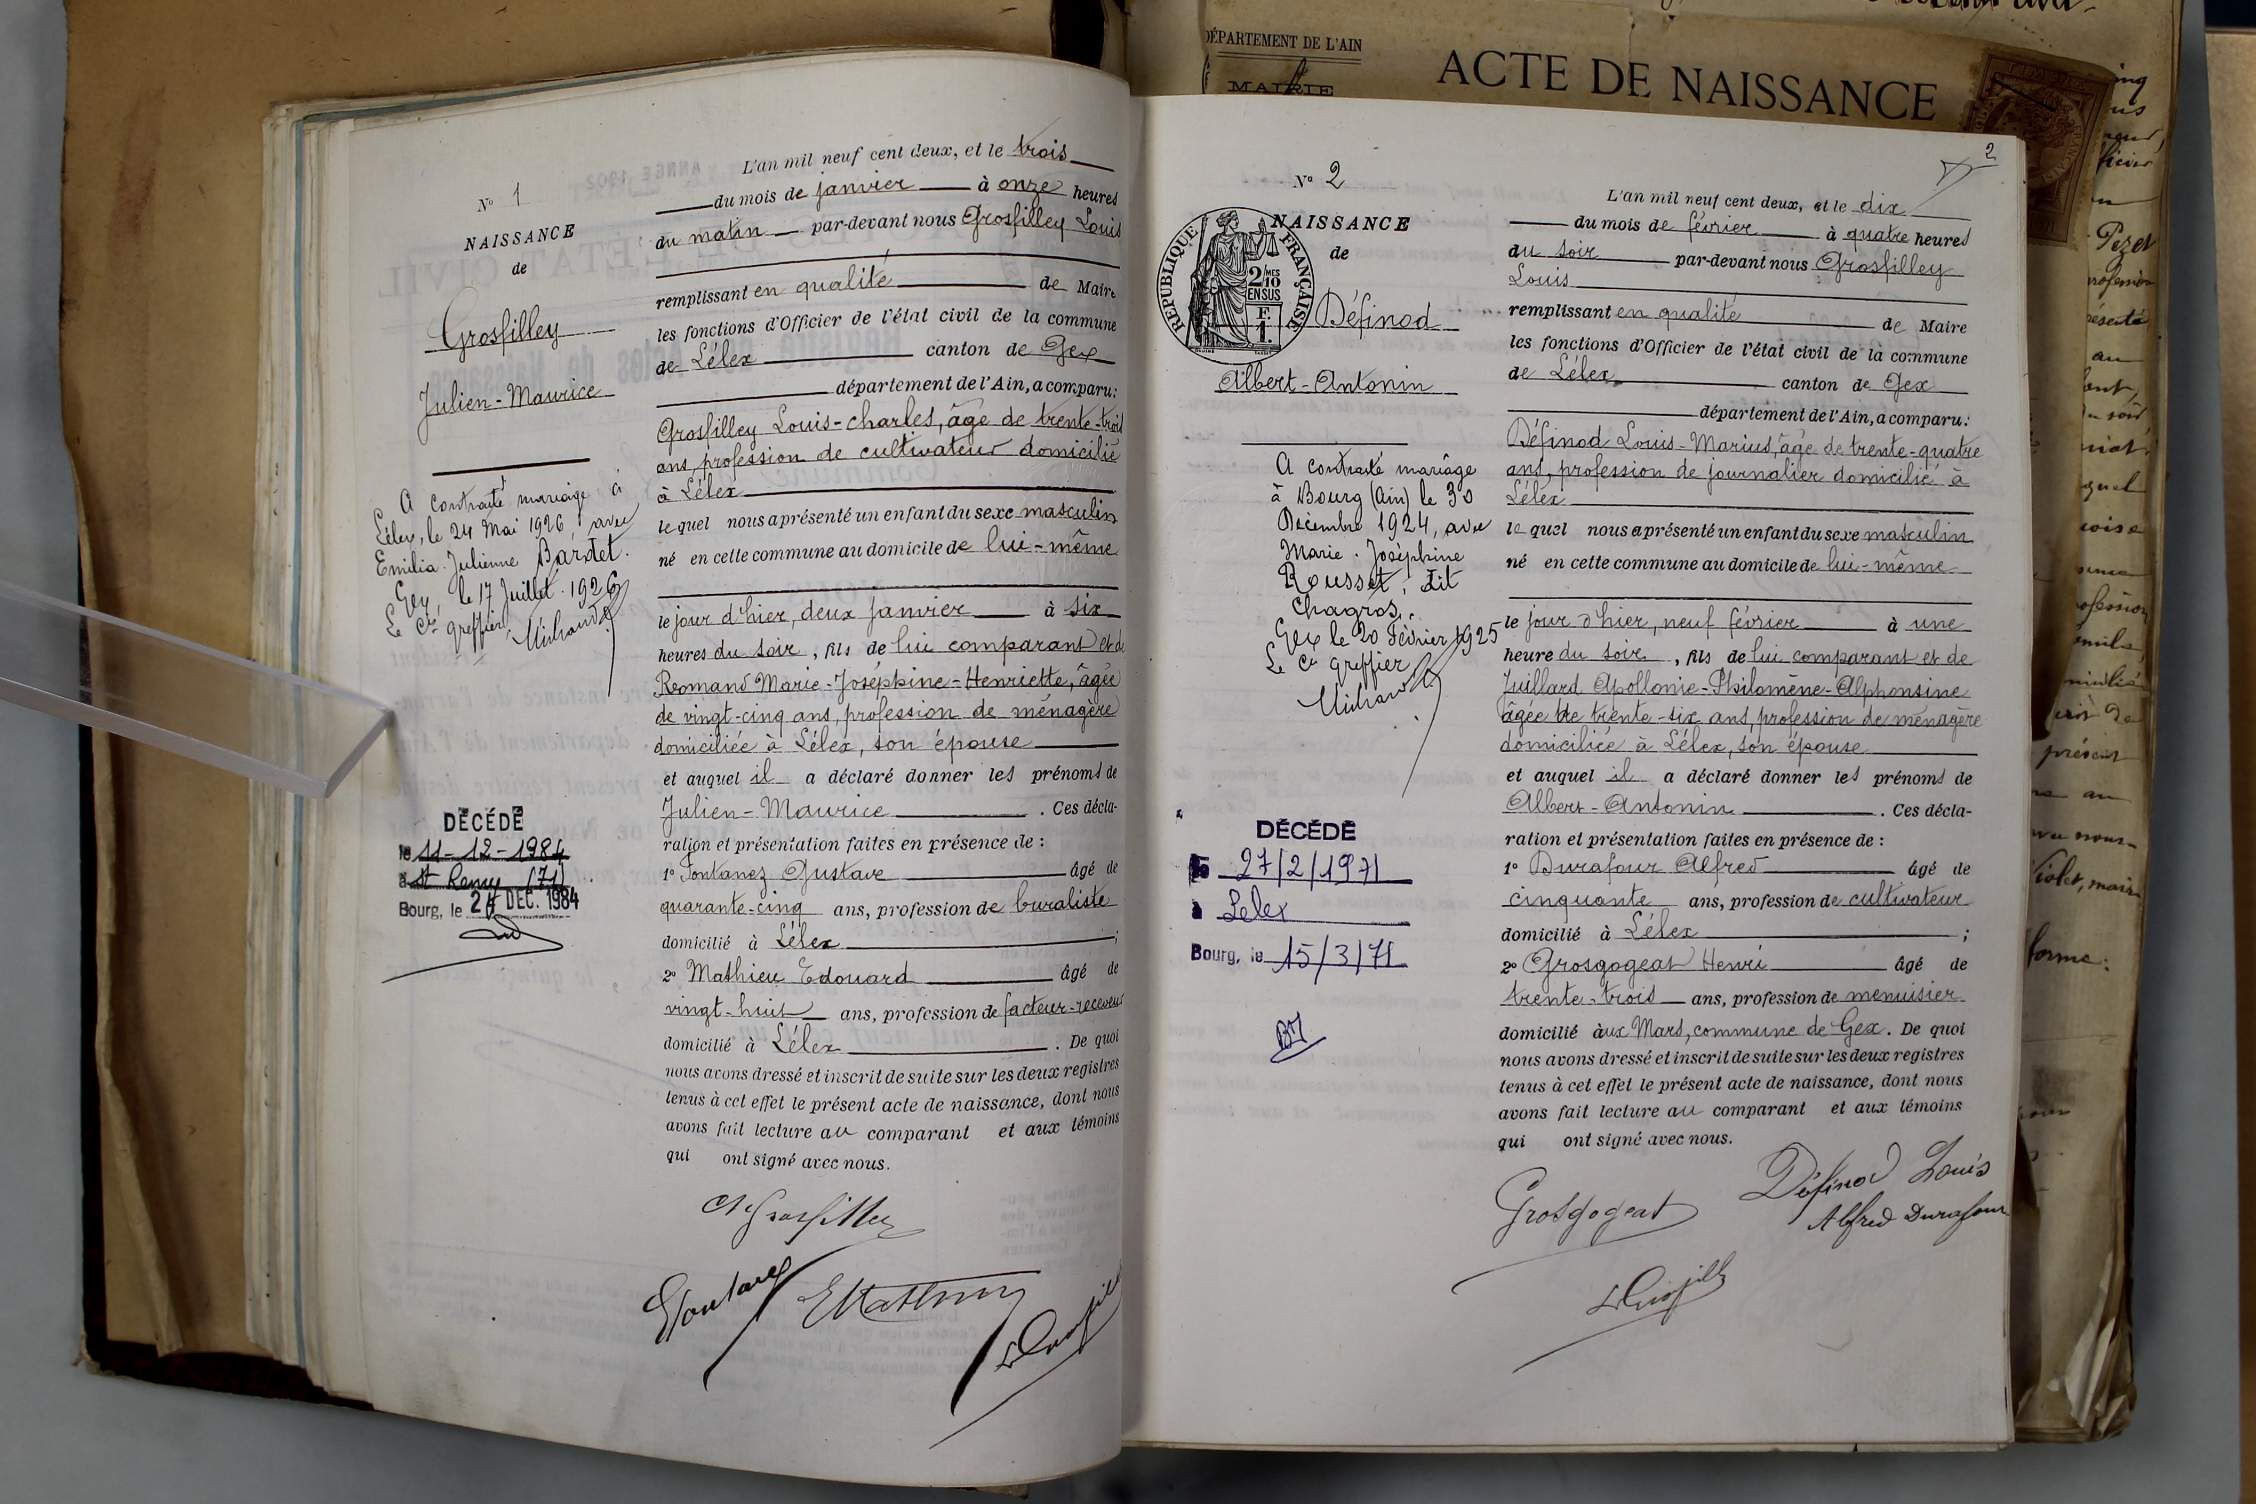 N° 1
NAISSANCE
de
Grosfilley
Julien-Maurice
A contracté mariage à
Lélex, le 24 Mai 1926, avec
Emilia Julienne Bardet.
Gex, le 17 Juillet 1926
Le Cis greffier,
Michaud
DÉCÉDÉ
le 11-12-1984
à St Remy (71)
Bourg, le 24 DEC. 1984
L'an mil neuf cent deux, et le trois
du mois de janvier à onze heures
du matin par-devant nous Grosfilley Louis
remplissant en qualité de Maire
les fonctions d'Officier de l'état civil de la commune
de Lélex canton de Gex
département de l'Ain, a comparu:
Grosfilley Louis-Charles, âgé de trente-trois
ans, profession de cultivateur domicilié
à Lélex
lequel nous a présenté un enfant du sexe masculin
né en cette commune au domicile de lui-même
le jour d'hier, deux janvier à six
heures du soir, fils de lui comparant et de
Romand Marie-Joséphine-Henriette, âgée
de vingt-cinq ans, profession de ménagère
domiciliée à Lélex, son épouse
et auquel il a déclaré donner les prénoms de
Julien-Maurice. Ces décla-
ration et présentation faites en présence de :
1° Fontanez Gustave âgé de
quarante-cinq ans, profession de buraliste
domicilié à Lélex ;
2° Mathieu Edouard âgé de
vingt-huit ans, profession de facteur-receveur
domicilié à Lélex. De quoi
nous avons dressé et inscrit de suite sur les deux registres
tenus à cet effet le présent acte de naissance, dont nous
avons fait lecture au comparant et aux témoins
qui ont signé avec nous.
Grosfilley
Fontanez
E Mathieu
L Grosfilley
DÉPARTEMENT DE L'AIN
MAIRIE
ACTE DE NAISSANCE
2
N° 2
NAISSANCE
de
RÉPUBLIQUE FRANÇAISE
2/10 MES
EN SUS
F.
1.
Définod
Albert-Antonin
A contracté mariage
à Bourg (Ain) le 30
Décembre 1924, avec
Marie-Joséphine
Rousset, dit
Chagros.
Gex le 20 Février 1925
Le Cis greffier
Michaud
DÉCÉDÉ
le 27/2/1971
à Lelex
Bourg, le 15/3/71
L'an mil neuf cent deux, et le dix
du mois de février à quatre heures
du soir par-devant nous Grosfilley
Louis
remplissant en qualité de Maire
les fonctions d'Officier de l'état civil de la commune
de Lélex canton de Gex
département de l'Ain, a comparu:
Définod Louis-Marius, âgé de trente-quatre
ans, profession de journalier domicilié à
Lélex
lequel nous a présenté un enfant du sexe masculin
né en cette commune au domicile de lui-même
le jour d'hier, neuf février à une
heure du soir, fils de lui comparant et de
Juillard Apollonie-Philomène-Alphonsine
âgée de trente-six ans, profession de ménagère
domiciliée à Lélex, son épouse
et auquel il a déclaré donner les prénoms de
Albert-Antonin. Ces décla-
ration et présentation faites en présence de :
1° Durafour Alfred âgé de
cinquante ans, profession de cultivateur
domicilié à Lélex ;
2° Grosgogeat Henri âgé de
trente-trois ans, profession de menuisier
domicilié aux Mars, commune de Gex. De quoi
nous avons dressé et inscrit de suite sur les deux registres
tenus à cet effet le présent acte de naissance, dont nous
avons fait lecture au comparant et aux témoins
qui ont signé avec nous.
Grosgogeat
Définod Louis
Alfred Durafour
L Grosfilley
Pezet
profession
présenté
au
profession
présent
Violet, maire
forme: